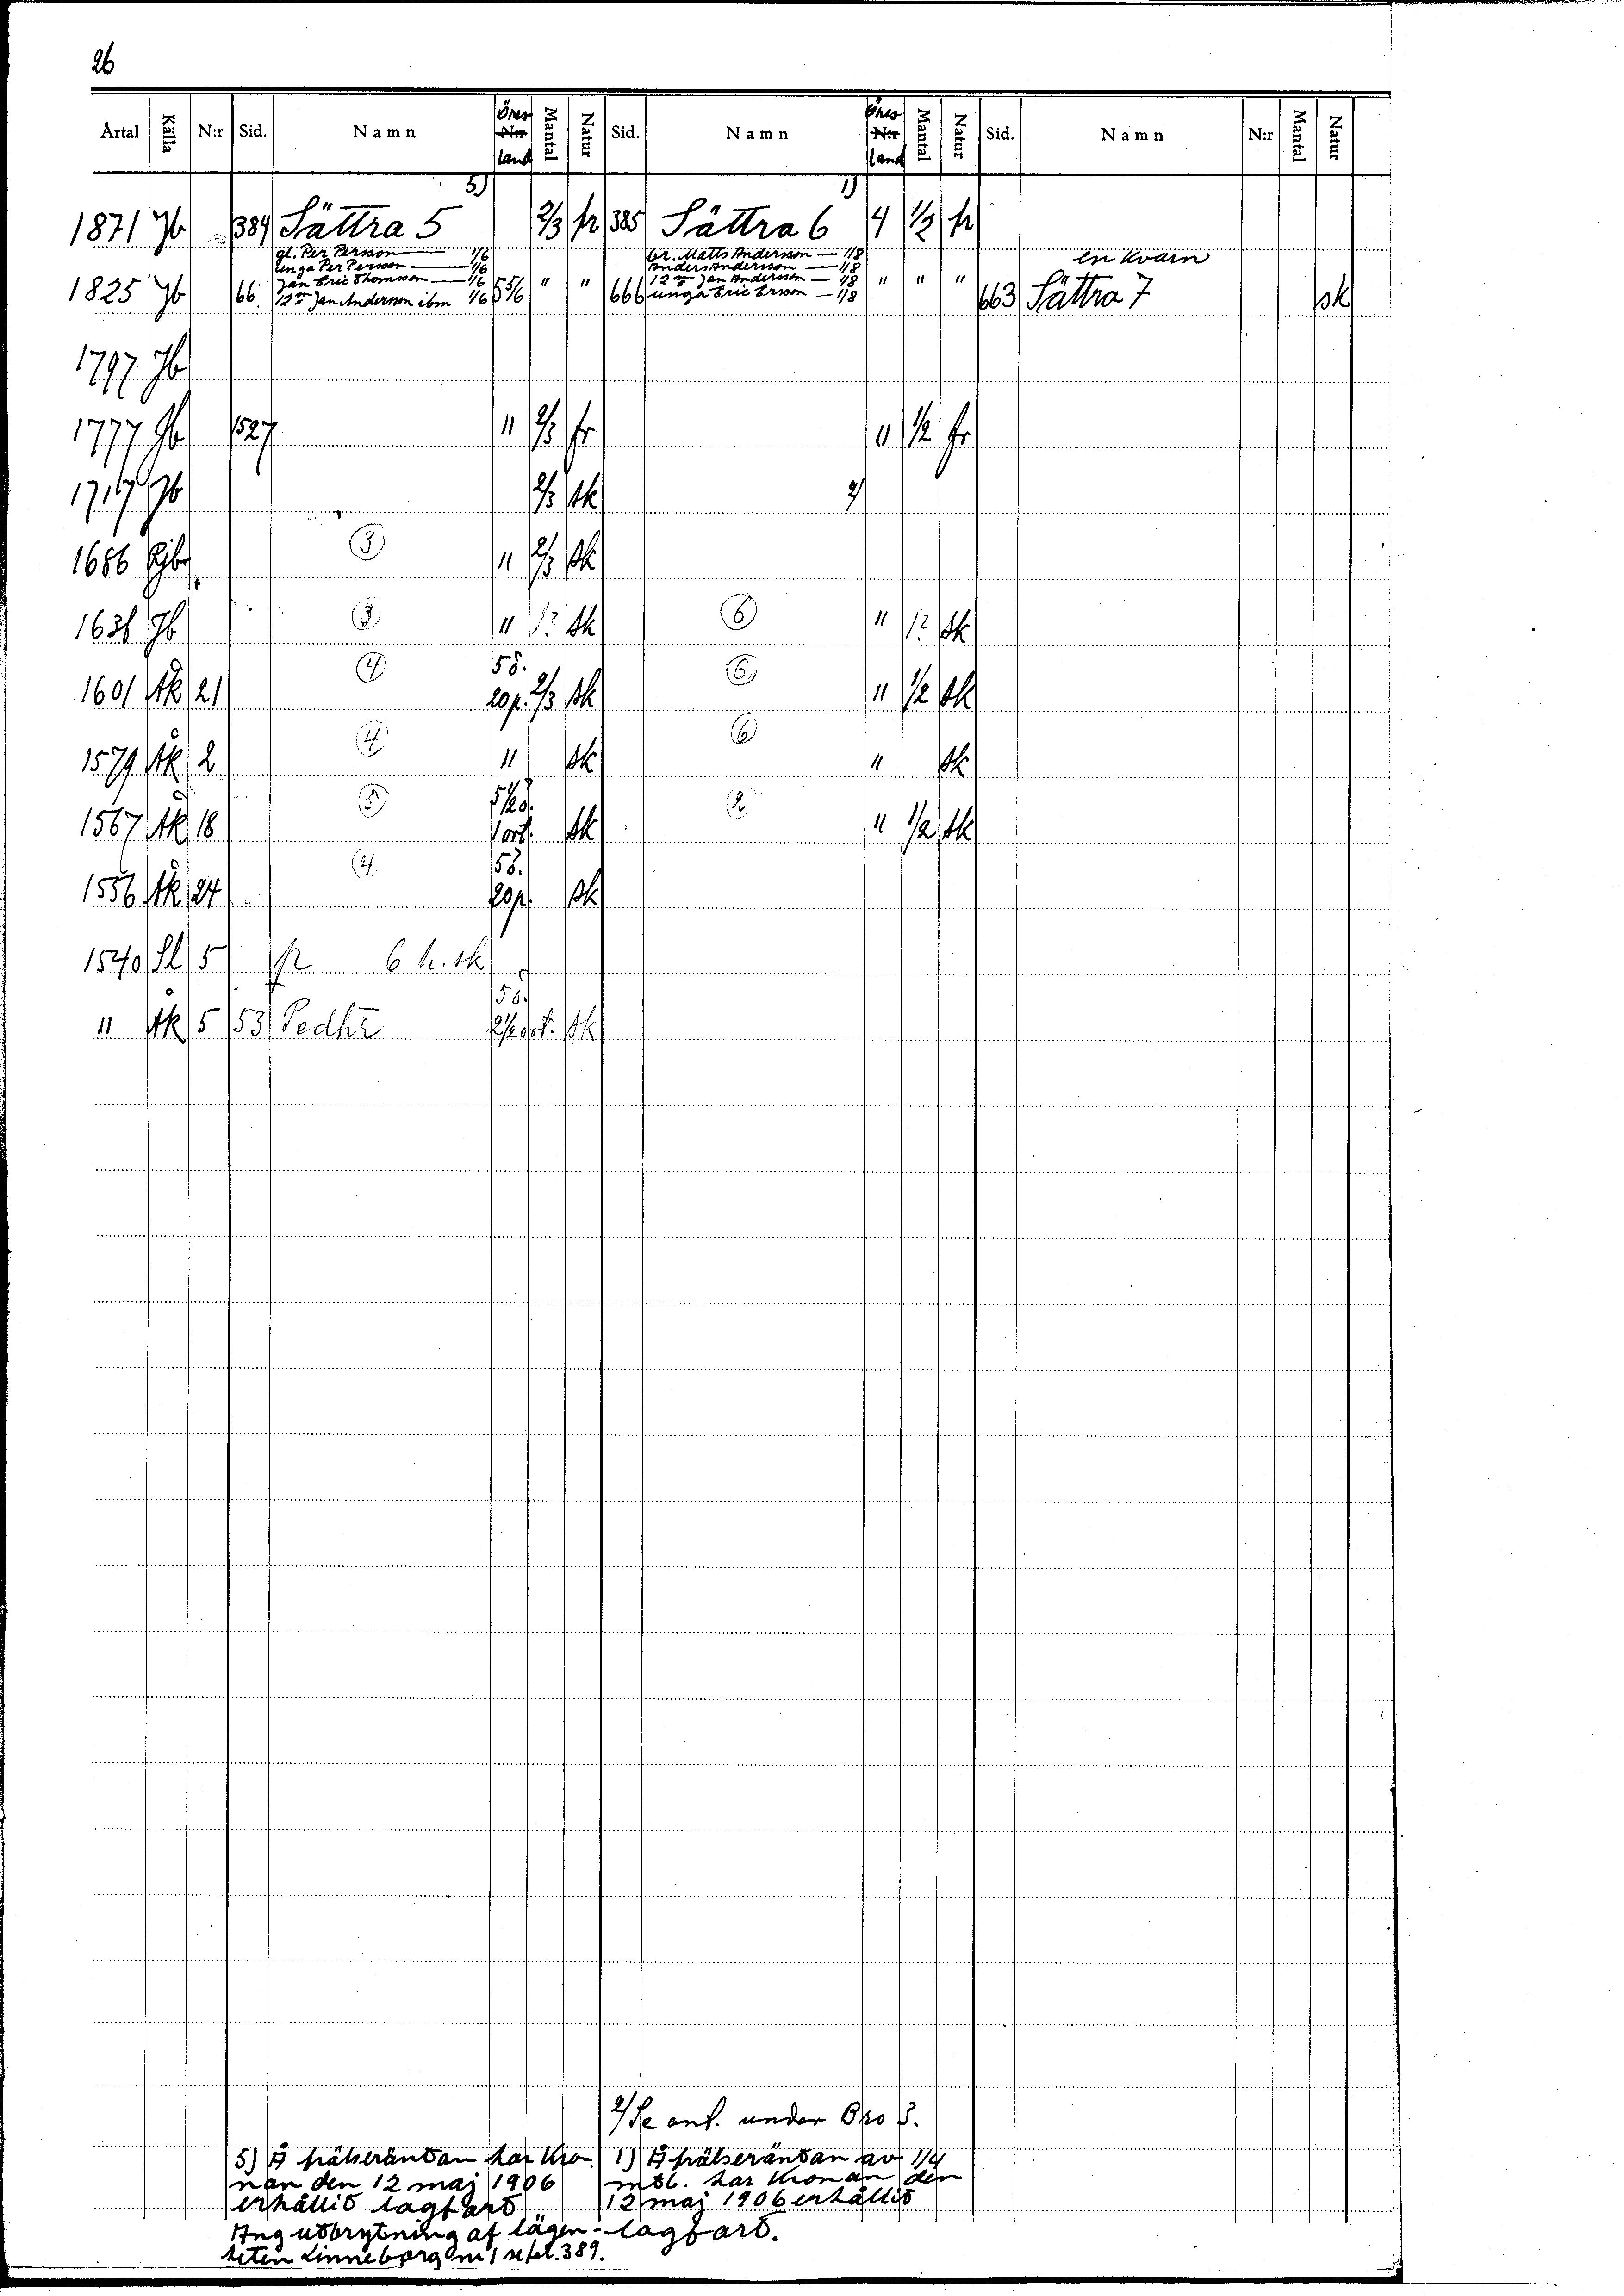 26
Årtal Källa N:r Sid. Namn Öres N:r land Mantal Natur Sid. Namn Öres N:r land Mantal Natur Sid. Namn N:r Mantal Natur
5) 1)
1871 Jb 384 Sättra 5 2/3 fr 385 Sättra 6 4 1/2 fr
gl. Per Person 1/6 br. Matts Andersson — 1/8 en kvarn
unga Per Person 1/6 Anders Andersson — 1/8
Jan Eric Thomsson 1/6 12m Jan Andersson — 1/8
1825 Jb 66 12m Jan Anderson ibm 1/6 5 5/6 " " 666 unga Eric Ersson — 1/8 " " " 663 Sättra 7 sk
1797 Jb
1777 Jb 1527 " 2/3 fr " 1/2 fr
1717 Jb 2/3 sk 2/
1686 Jb 3 " 2/3 sk
1636 Jb 3 " 1? sk 6 " 1? sk
1601 Åk 21 4 5ö. 20p. 2/3 sk 6 " 1/2 sk
1579 Åk 2 4 " sk 6 " sk
1567 Åk 18 5 5½ö. 1 ort. sk 2 " 1/2 sk
1556 Åk 24 4 5ö. 20p. sk
1540 Sl 5 6 h. sk
" Åk 5 53 Pedhr 5ö. 2½ ort. sk
2/ Se ant. under Bro 3.
5) Å frälseräntan har Kro
nan den 12 maj 1906
erhållit lagfart
Ang utbrytning af lägen-
heten Linneborg nr 1 se fol. 389.
1) Å frälseräntan av 1/4
mtl. har Kronan den
12 maj 1906 erhållit
lagfart.